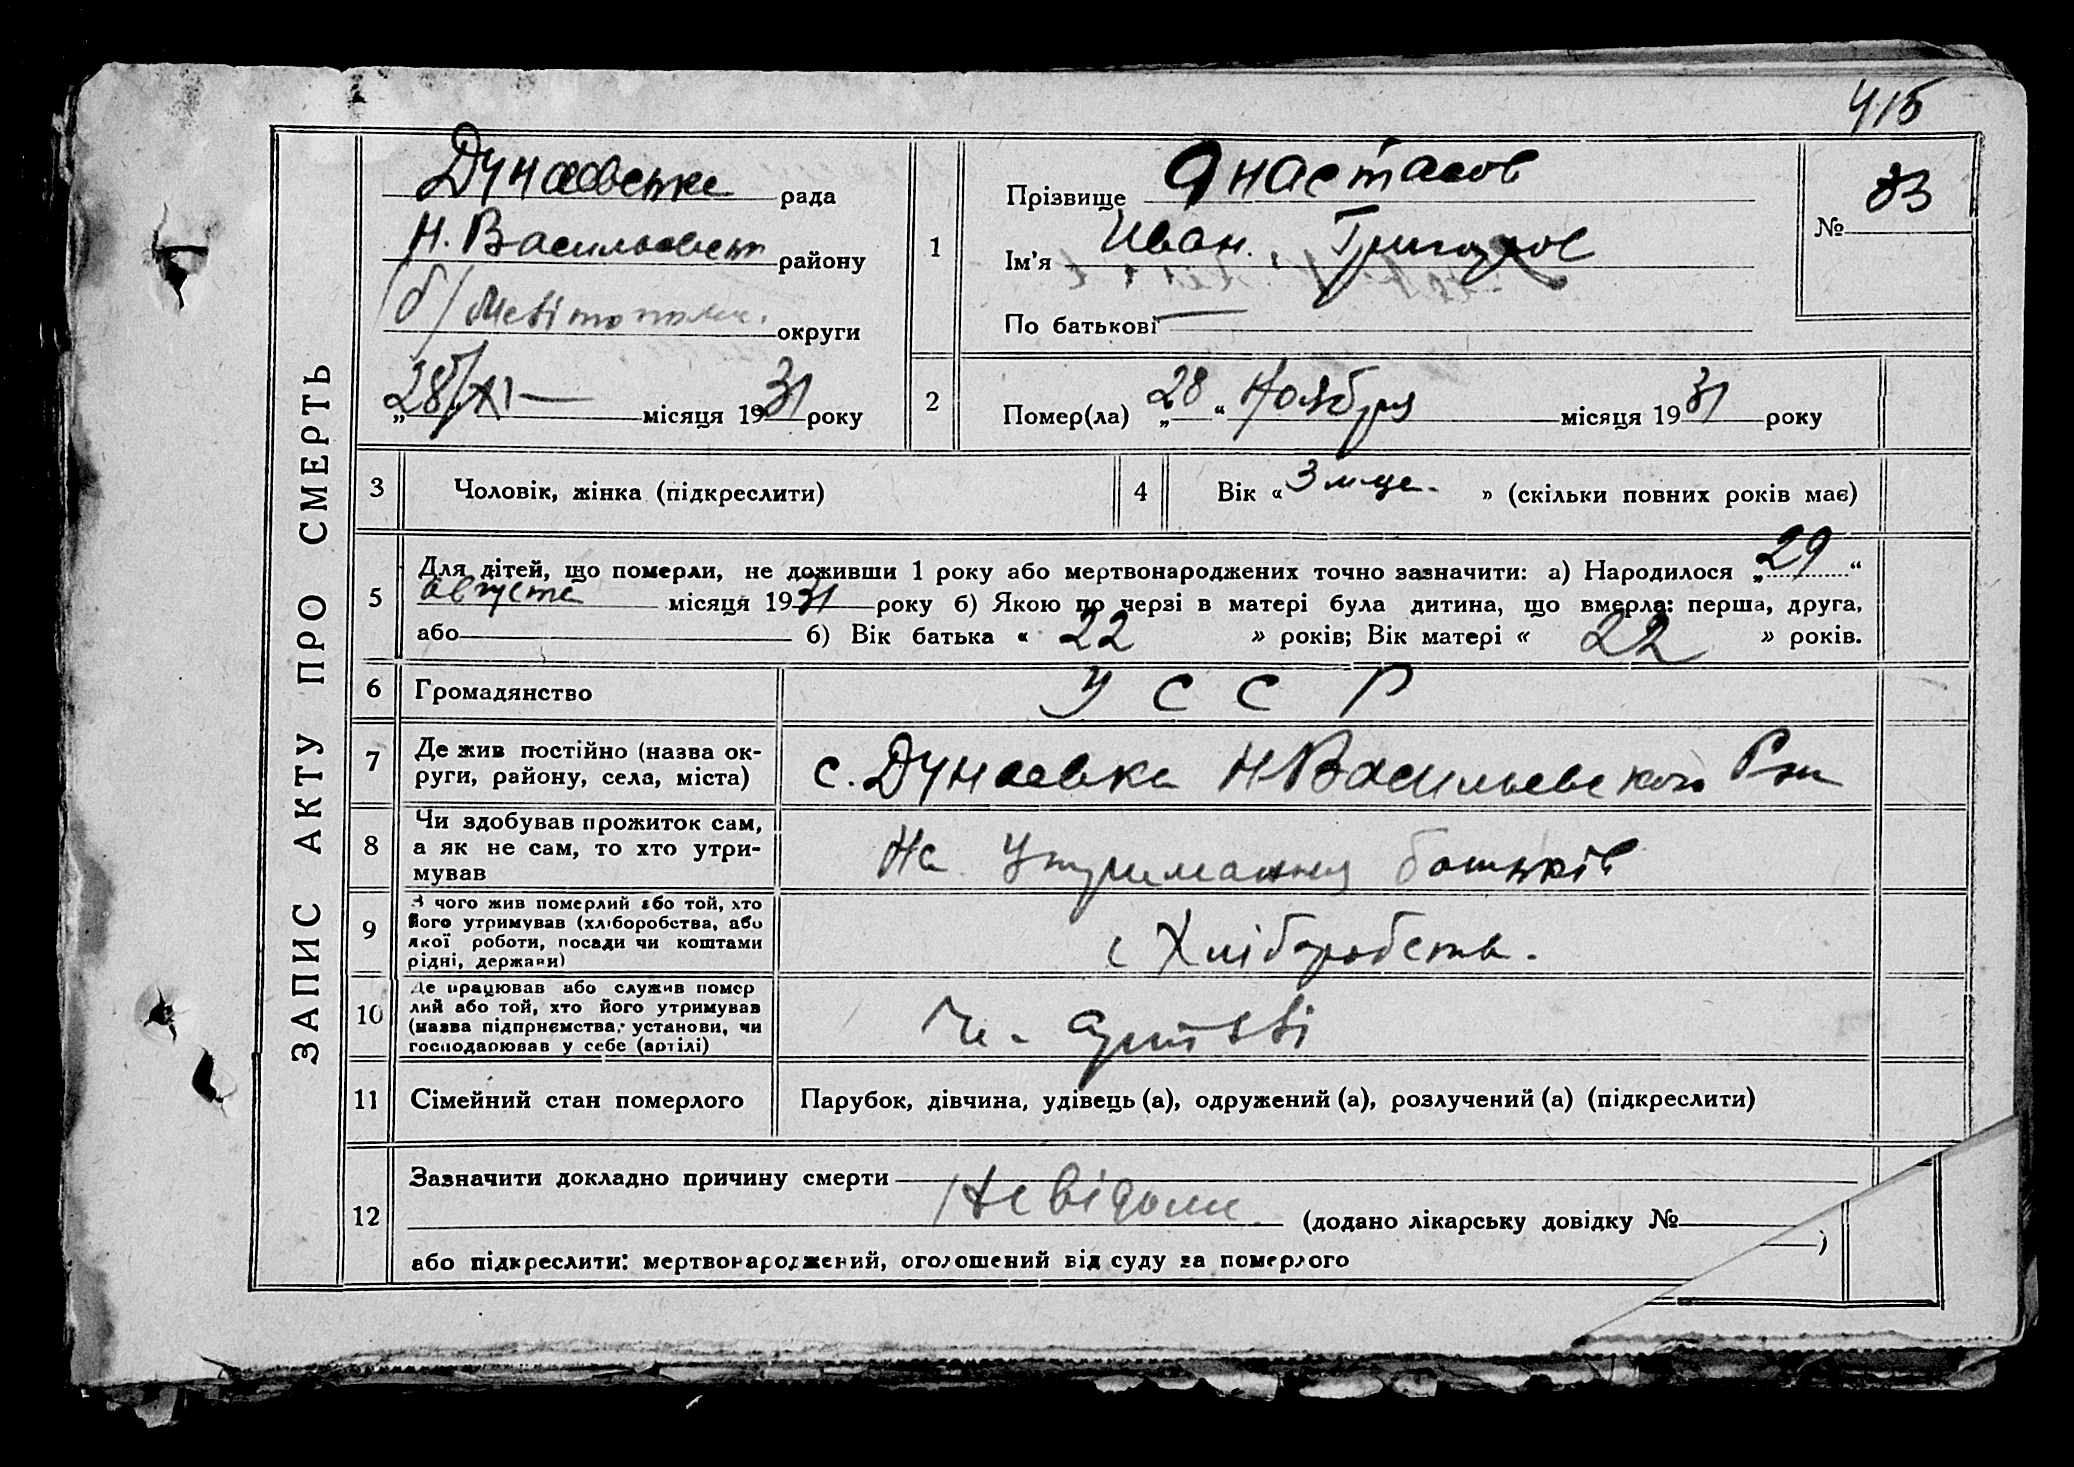 415
ЗАПИС АКТУ ПРО СМЕРТЬ
Дунаевська рада
Н. Васильевськ району
(б) Мелітопольс. округи
„28/XI— місяця 1931 року
1
Прізвище Анастасов
Ім’я Иван. Григоров
По батькові —
№ 83
2
Помер(ла) „28“ Ноября місяця 1931 року
3
Чоловік, жінка (підкреслити)
4
Вік « 3 м-ца. » (скільки повних років має)
5
Для дітей, що померли, не доживши 1 року або мертвонароджених точно зазначити: а) Народилося „29“
августа місяця 1931 року б) Якою по черзі в матері була дитина, що вмерла: перша, друга,
або б) Вік батька « 22 » років; Вік матері « 22 » років.
6
Громадянство
У С С Р
7
Де жив постійно (назва ок-
руги, району, села, міста)
с. Дунаевка Н-Васильевского Р-на
8
Чи здобував прожиток сам,
а як не сам, то хто утри-
мував
На утримання батьків
9
З чого жив померлий або той, хто
його утримував (хліборобства, або
якої роботи, посади чи коштами
рідні, держави)
с Хліборобств.
10
Де працював або служив помер
лий або той, хто його утримував
(назва підприємства, установи, чи
господарював у себе (артілі)
артілі
11
Сімейний стан померлого
Парубок, дівчина, удівець (а), одружений (а), розлучений (а) (підкреслити)
12
Зазначити докладно причину смерти
Невідоме. (додано лікарську довідку № )
або підкреслити: мертвонароджений, оголошений від суду за померлого